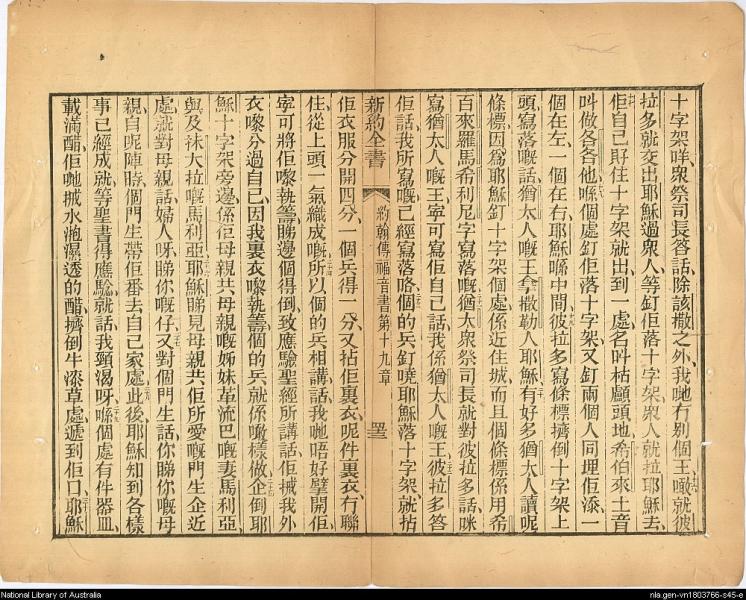 十字架咩、眾祭司長答話、除該撒之外、我哋冇别個王、噉就彼
拉多就交出耶穌過眾人、等釘佢落十字架、眾人就拉耶穌去、
佢自己𢬿住十字架就出到一處、名呌枯顱頭地、希伯來土音
呌做各各他、喺個處釘佢落十字架、又釘兩個人同埋佢、添一
個在左、一個在右、耶穌喺中間、彼拉多寫條標、擠倒十字架上
頭、寫落嘅話、猶太人嘅王、拿撒勒人耶穌、有好多猶太人讀呢
條標、因爲耶穌釘十字架個處、係近住城、而且個條標係用希
百來羅馬希利尼字寫落嘅、猶太眾祭司長就對彼拉多話、咪
寫猶太人嘅王、寧可寫佢自己話我係猶太人嘅王、彼拉多答
佢話、我所寫嘅、已經寫落咯、個的兵釘嘵耶穌落十字架、就拈
新約全書 約翰傳福音書第十九章 罒三
佢衣服分開四分、一個兵得一分、又拈佢裏衣、呢件裏衣冇聯
倨、從上頭一氣織成嘅、所以個的兵相講話、我哋唔好擘開佢、
寧可將佢嚟執籌、睇邊個得倒、致應驗聖經所講話、佢搣我外
衣嚟分過自己、因我裏衣嚟執籌、個的兵就係噉樣做、企倒耶
穌十字架旁邊、係佢母親、共母親嘅姊妹革流巴嘅妻馬利亞、
與及袜大拉嘅馬利亞、耶穌睇見母親、共佢所愛嘅門生企近
處、就對母親話、婦人呀、睇你嘅仔、又對個門生話、你睇你嘅母
親、自呢陣時、個門生帶佢番去自己家處、此後耶穌知到各樣
事已經成就、等聖書得應驗、就話、我頸渴呀、喺個處有件器皿、
載滿醋、佢哋搣水泡濕透的醋、擠倒牛漆草處、遞到佢口、耶穌
National Library of Australia
nla.gen-vn1803766-s45-e